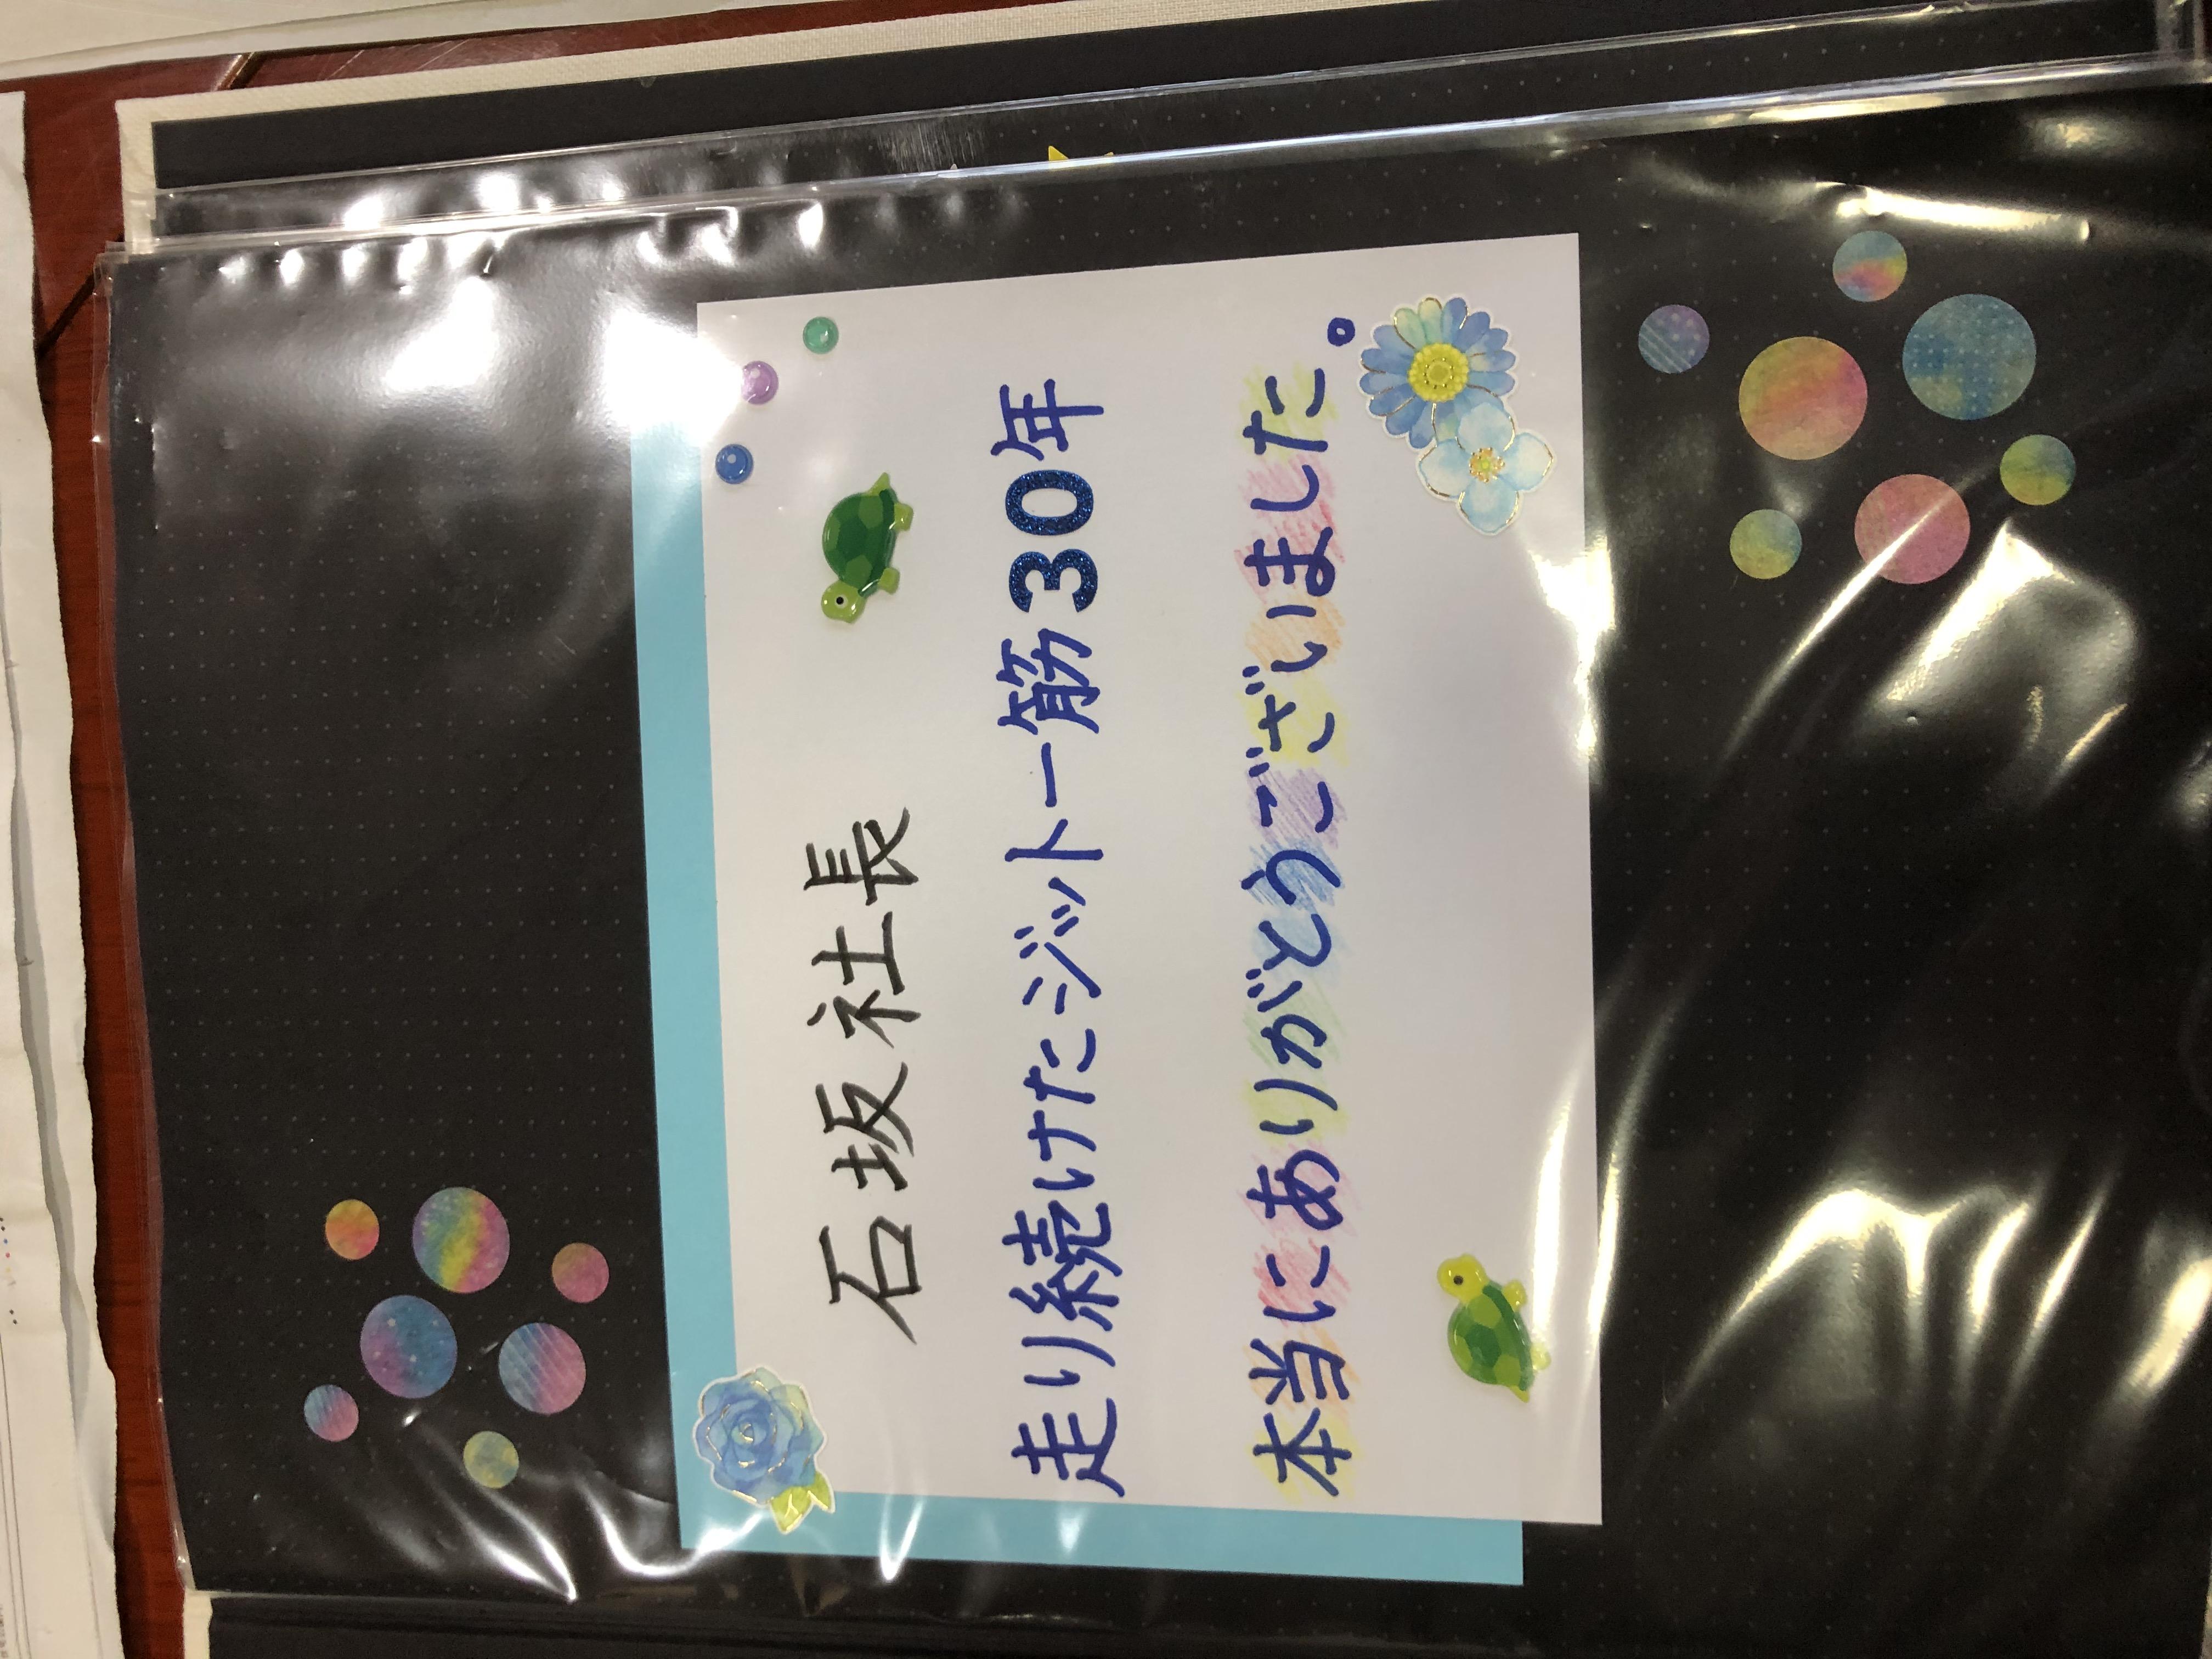 石坂社長
走り続けたジット一筋30年
本当にありがとうございました。